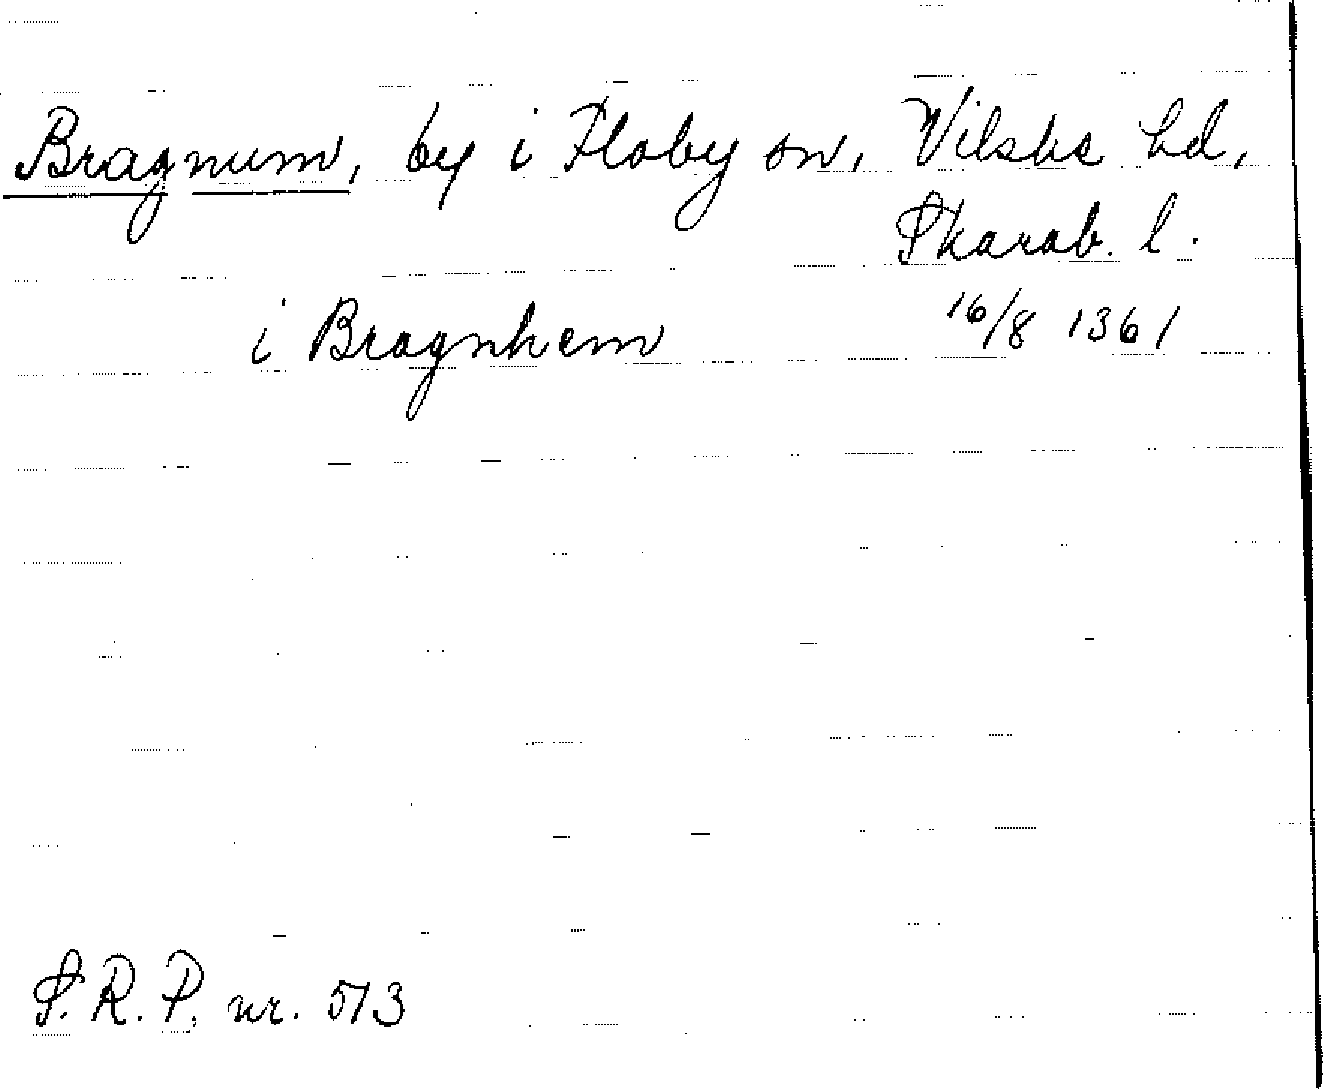 Bragnum, by i Floby sn, Vilske hd,
Skarab. l.
i Bragnhem 16/8 1361
S.R.P. nr. 513